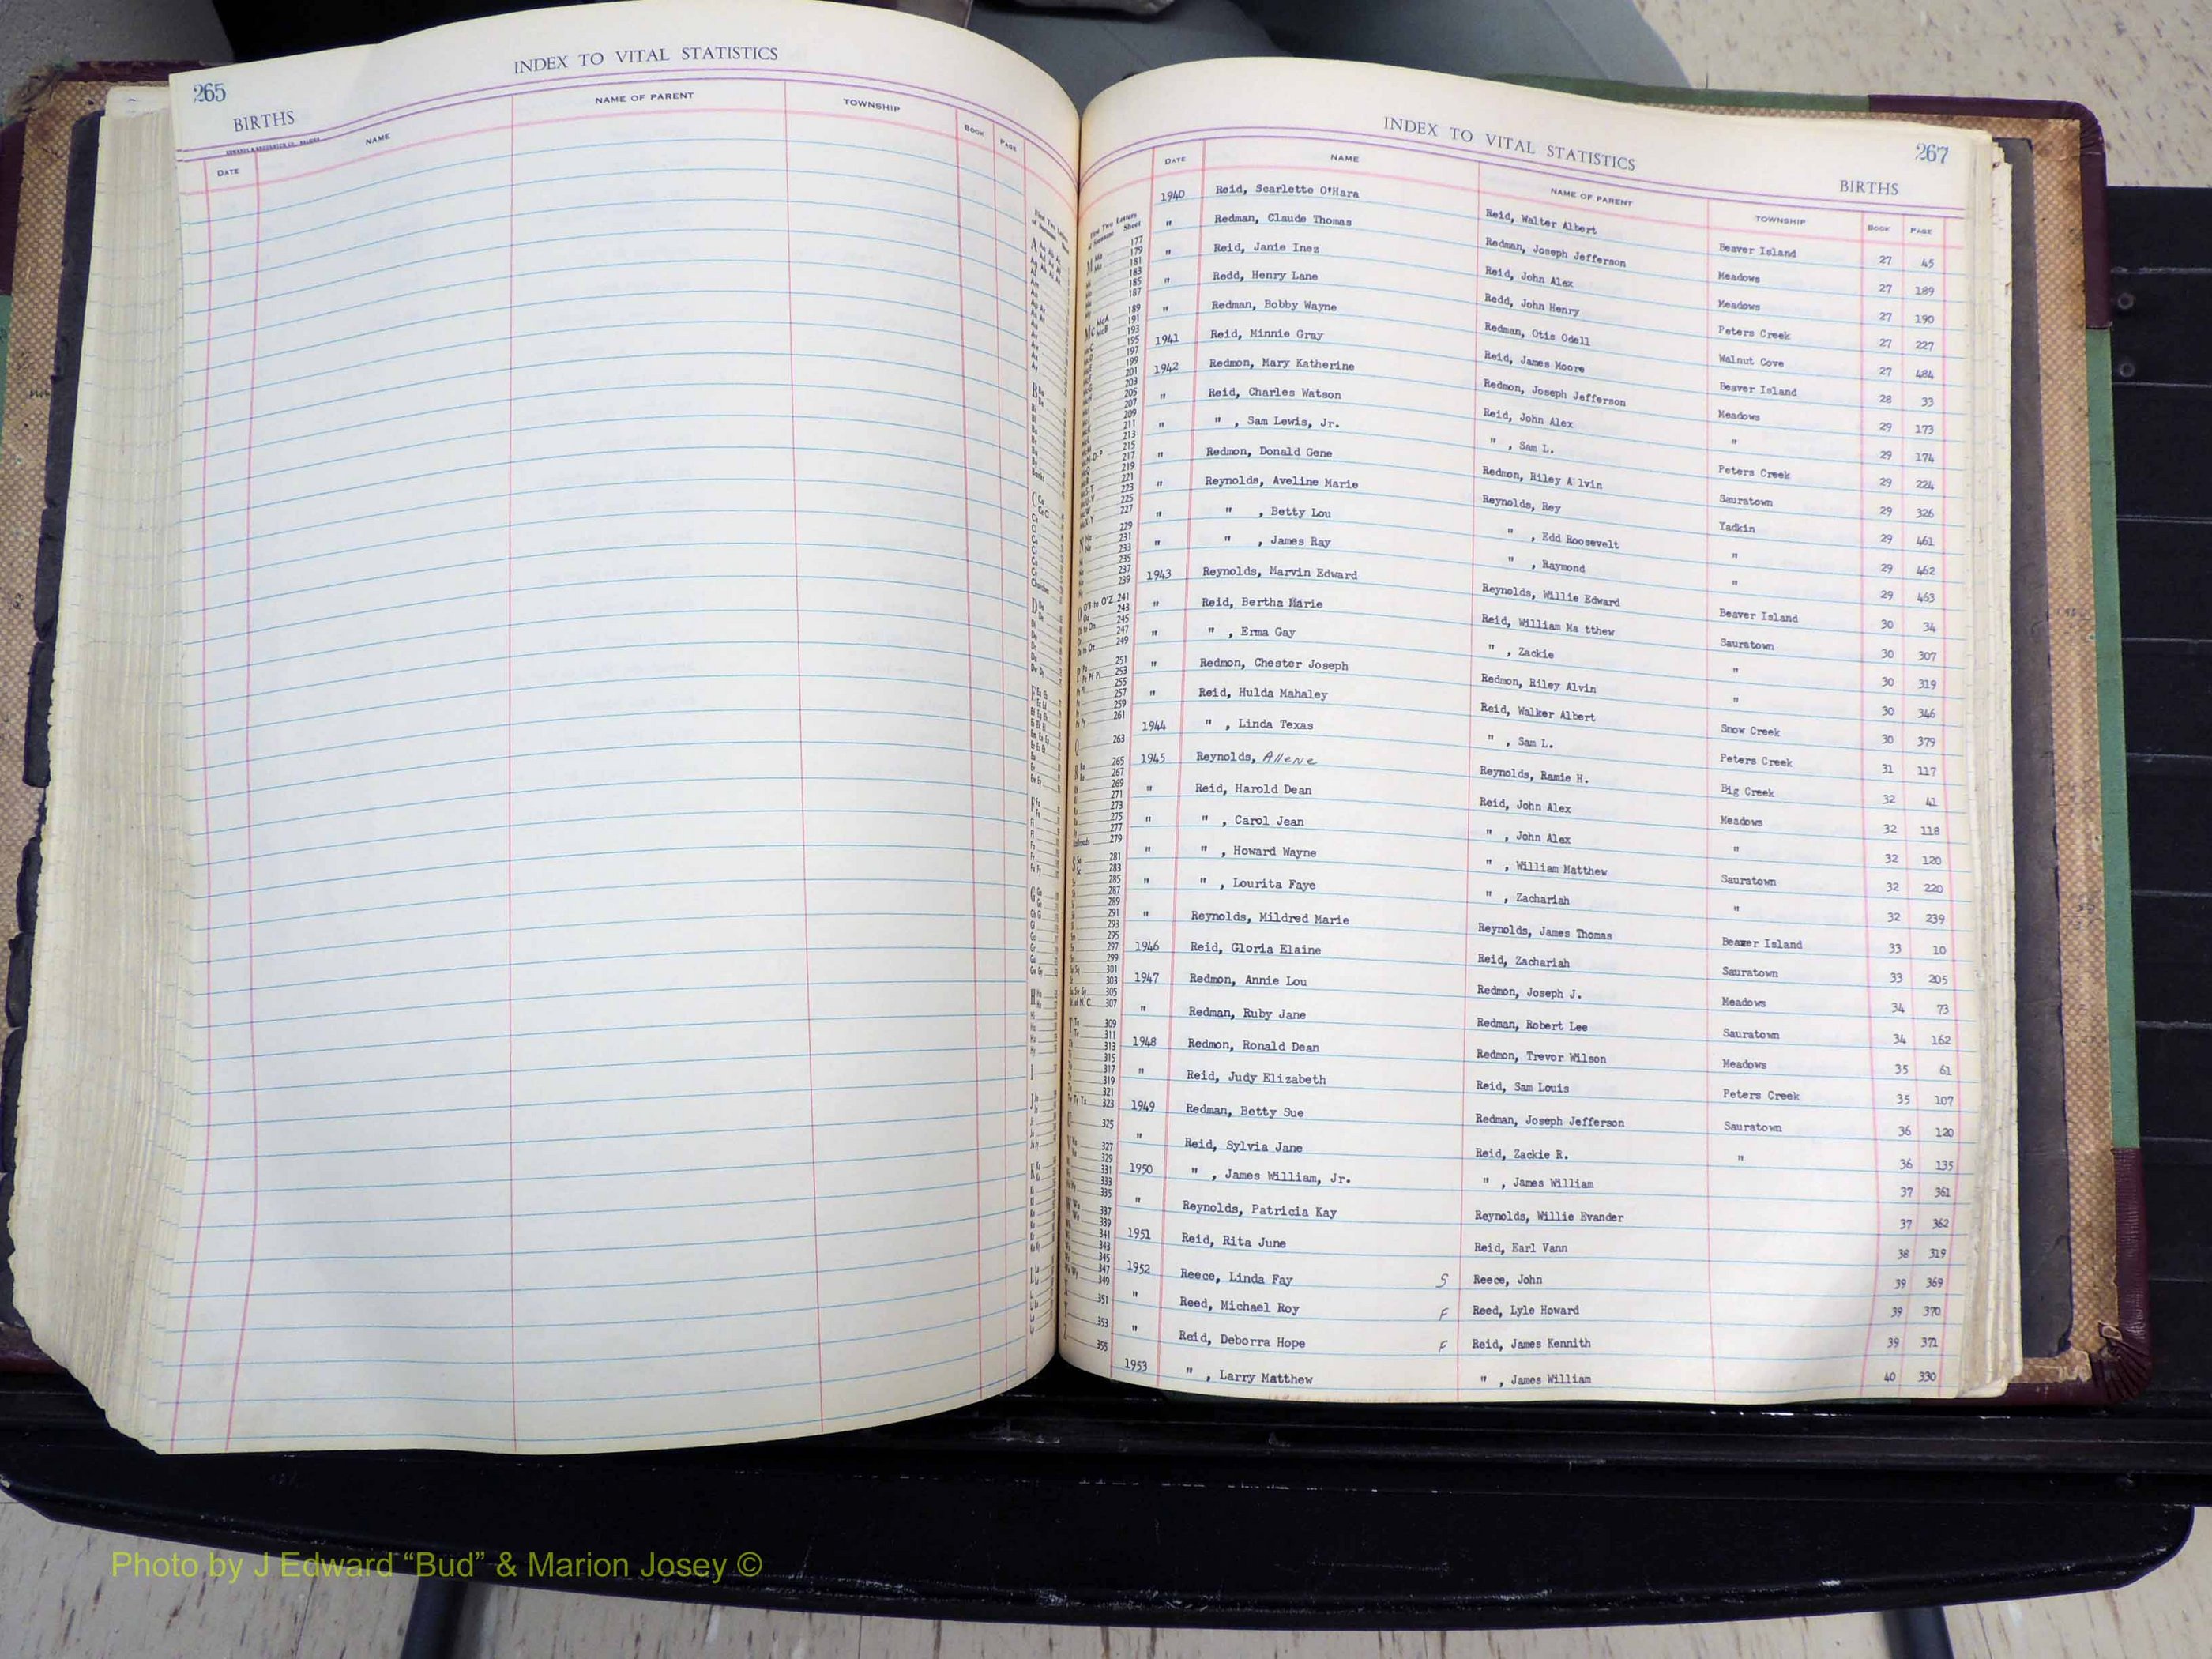 265
INDEX TO VITAL STATISTICS
BIRTHS
DATE NAME NAME OF PARENT TOWNSHIP BOOK PAGE
INDEX TO VITAL STATISTICS
267
BIRTHS
DATE NAME NAME OF PARENT TOWNSHIP BOOK PAGE
1940 Reid, Scarlette O'Hara Reid, Walter Albert Beaver Island 27 45
" Redman, Claude Thomas Redman, Joseph Jefferson Meadows 27 189
" Reid, Janie Inez Reid, John Alex Meadows 27 190
" Redd, Henry Lane Redd, John Henry Peters Creek 27 227
" Redman, Bobby Wayne Redman, Otis Odell Walnut Cove 27 484
1941 Reid, Minnie Gray Reid, James Moore Beaver Island 28 33
1942 Redmon, Mary Katherine Redmon, Joseph Jefferson Meadows 29 173
" Reid, Charles Watson Reid, John Alex " 29 174
" " , Sam Lewis, Jr. " , Sam L. Peters Creek 29 224
" Redmon, Donald Gene Redmon, Riley Alvin Sauratown 29 326
" Reynolds, Aveline Marie Reynolds, Rey Yadkin 29 461
" " , Betty Lou " , Edd Roosevelt " 29 462
" " , James Ray " , Raymond " 29 463
1943 Reynolds, Marvin Edward Reynolds, Willie Edward Beaver Island 30 34
" Reid, Bertha Marie Reid, William Ma tthew Sauratown 30 307
" " , Erma Gay " , Zackie " 30 319
" Redmon, Chester Joseph Redmon, Riley Alvin " 30 346
" Reid, Hulda Mahaley Reid, Walker Albert Snow Creek 30 379
1944 " , Linda Texas " , Sam L. Peters Creek 31 117
1945 Reynolds, Allene Reynolds, Ramie H. Big Creek 32 41
" Reid, Harold Dean Reid, John Alex Meadows 32 118
" " , Carol Jean " , John Alex " 32 120
" " , Howard Wayne " , William Matthew Sauratown 32 220
" " , Lourita Faye " , Zachariah " 32 239
" Reynolds, Mildred Marie Reynolds, James Thomas Beaver Island 33 10
1946 Reid, Gloria Elaine Reid, Zachariah Sauratown 33 205
1947 Redmon, Annie Lou Redmon, Joseph J. Meadows 34 73
" Redman, Ruby Jane Redman, Robert Lee Sauratown 34 162
1948 Redmon, Ronald Dean Redmon, Trevor Wilson Meadows 35 61
" Reid, Judy Elizabeth Reid, Sam Louis Peters Creek 35 107
1949 Redman, Betty Sue Redman, Joseph Jefferson Sauratown 36 120
" Reid, Sylvia Jane Reid, Zackie R. " 36 135
1950 " , James William, Jr. " , James William 37 361
" Reynolds, Patricia Kay Reynolds, Willie Evander 37 362
1951 Reid, Rita June Reid, Earl Vann 38 319
1952 Reece, Linda Fay S Reece, John 39 369
" Reed, Michael Roy F Reed, Lyle Howard 39 370
" Reid, Deborra Hope F Reid, James Kennith 39 371
1953 " , Larry Matthew " , James William 40 330
Photo by J Edward “Bud” & Marion Josey ©